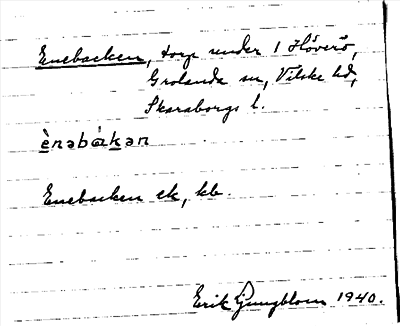 Enebacken, torp under 1 Höverö,
Grolanda sn, Vilske hd,
Skaraborgs l.
ènabàkan
Enebacken ek, kb.
Erik Ljungblom 1940.